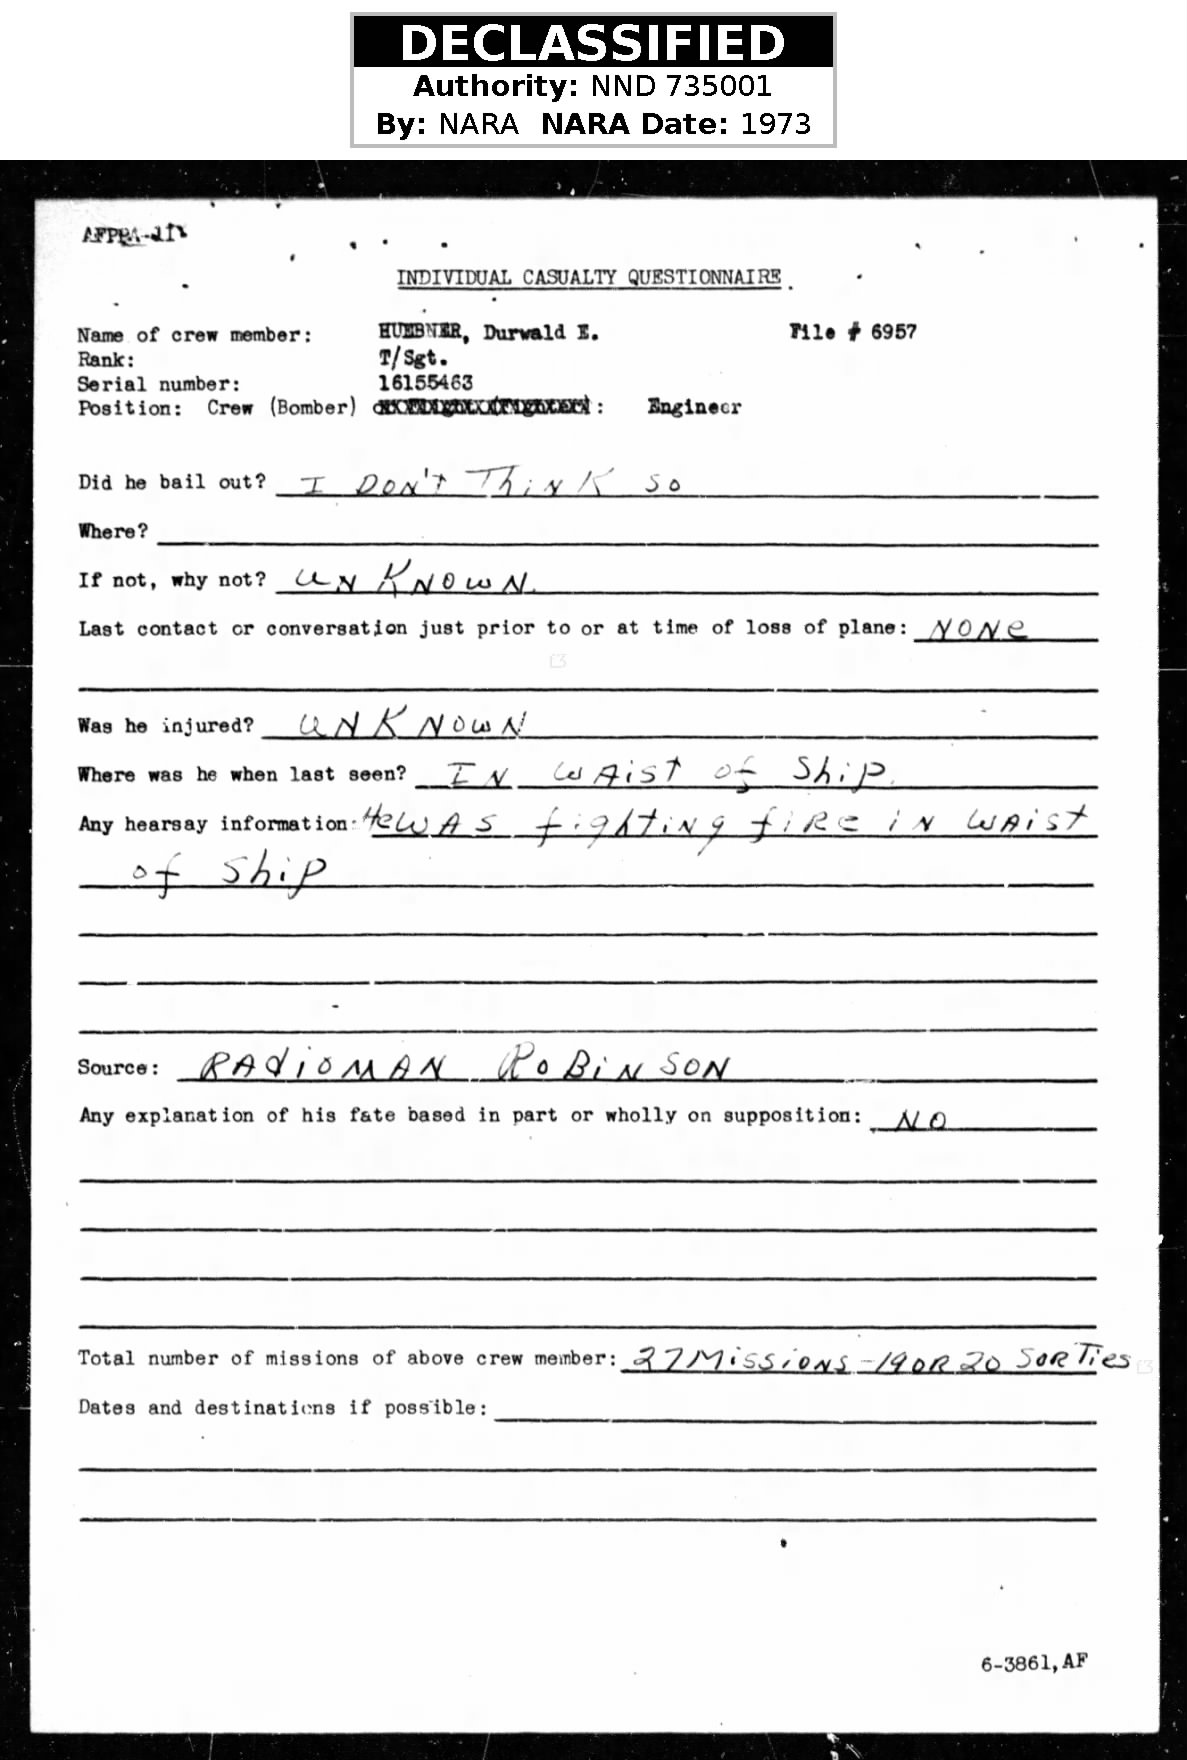 DECLASSIFIED
Authority: NND 735001
By: NARA NARA Date: 1973
INDIVIDUAL CASUALTY QUESTIONNAIRE
Name of crew member: HUEBNER, Durwald E. File # 6957
Rank: T/Sgt.
Serial number: 16155463
Position: Crew (Bomber) : Engineer
Did he bail out? I DON'T ThiNK SO
Where?
If not, why not? UNKNOWN.
Last contact or conversation just prior to or at time of loss of plane: NONe
Was he injured? UNKNOWN
Where was he when last seen? IN WAiST of Ship.
Any hearsay information: He WAS fighting fiRe iN WAist
of Ship
Source: RAdioMAN RoBiNSON
Any explanation of his fate based in part or wholly on supposition: NO
Total number of missions of above crew member: 27 MissioNS - 19 OR 20 SORTies
Dates and destinations if possible:
6-3861,AF